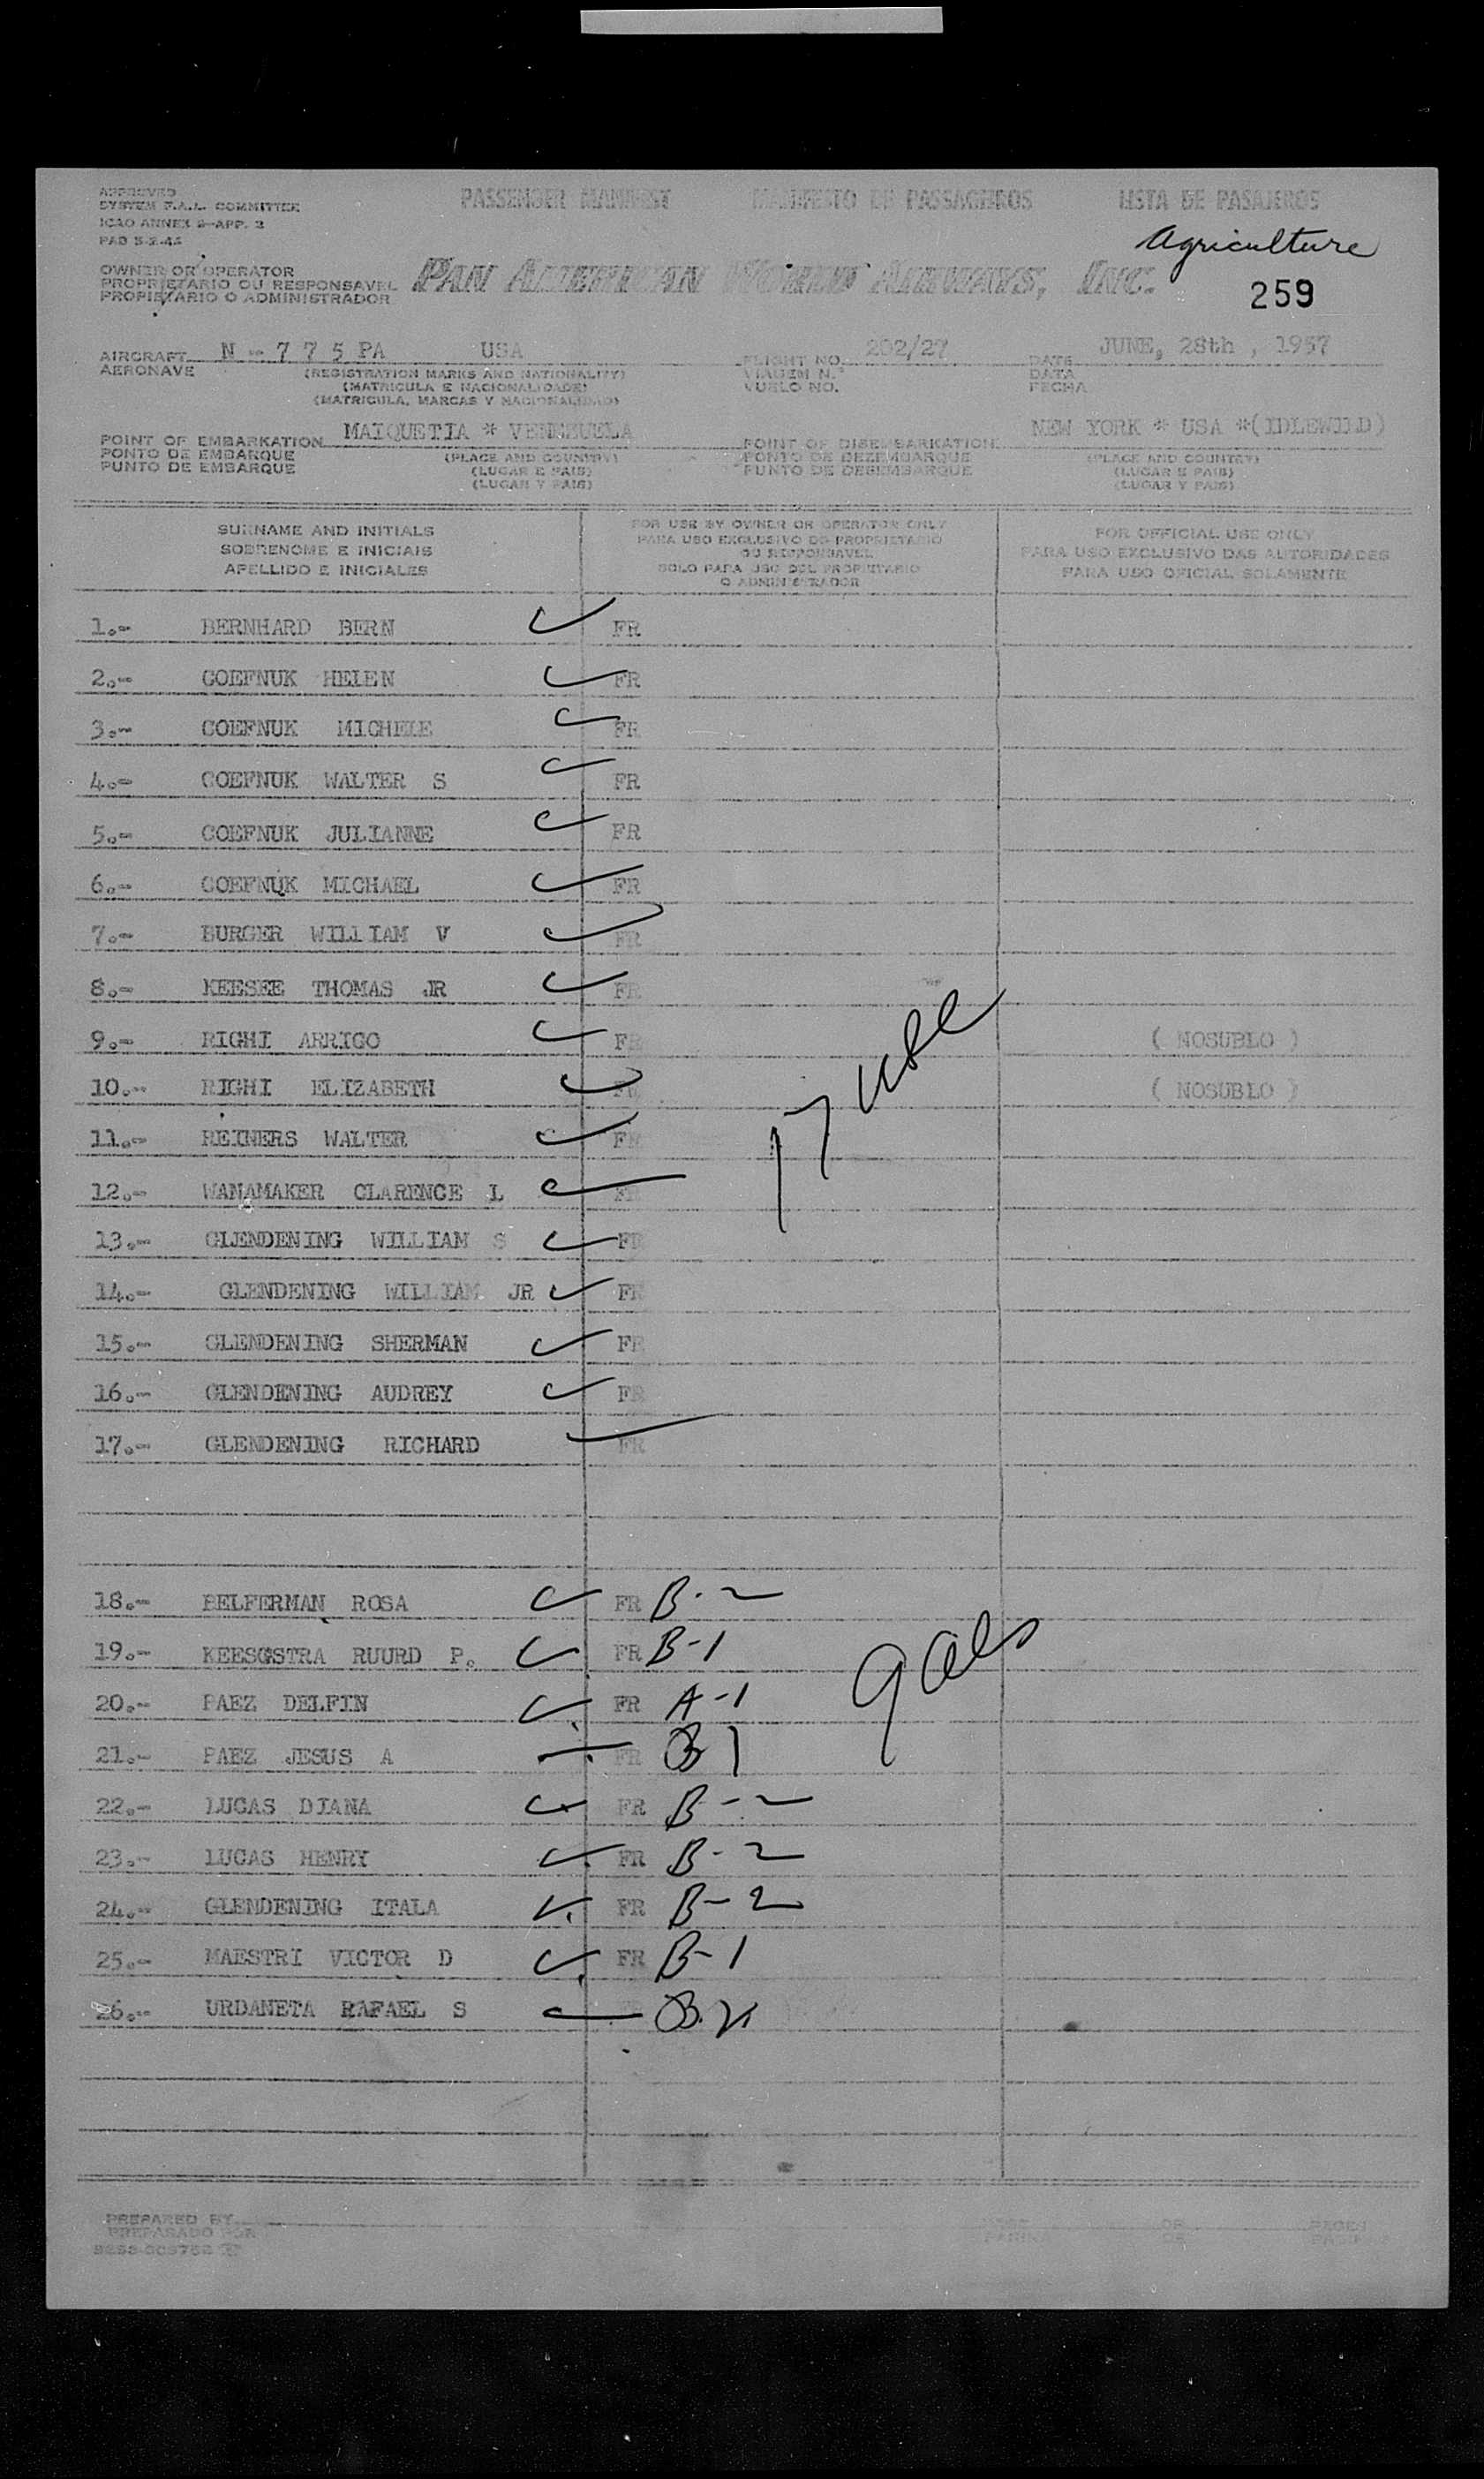 APPROVED
SYSTEM F.A.L. COMMITTEE
ICAO ANNEX 9-APP. 3
PAD 5-2-45
PASSENGER MANIFEST MANIFESTO DE PASSAGEIROS LISTA DE PASAJEROS
Agriculture
OWNER OR OPERATOR
PROPRIETARIO OU RESPONSAVEL
PROPIETARIO O ADMINISTRADOR
PAN AMERICAN WORLD AIRWAYS, INC.
259
AIRCRAFT N - 7 7 5 PA USA FLIGHT NO. 202/27 DATE JUNE, 28th , 1957
AERONAVE (REGISTRATION MARKS AND NATIONALITY) VIAGEM N.º DATA
(MATRICULA E NACIONALIDADE) VUELO NO. FECHA
(MATRICULA, MARCAS Y NACIONALIDAD)
POINT OF EMBARKATION MAIQUETIA * VENEZUELA POINT OF DISEMBARKATION NEW YORK * USA *(IDLEWILD)
PONTO DE EMBARQUE (PLACE AND COUNTRY) PONTO DE DEZEMBARQUE (PLACE AND COUNTRY)
PUNTO DE EMBARQUE (LUGAR E PAIS) PUNTO DE DESEMBARQUE (LUGAR E PAIS)
(LUGAR Y PAIS) (LUGAR Y PAIS)
SURNAME AND INITIALS
SOBRENOME E INICIAIS
APELLIDO E INICIALES
FOR USE BY OWNER OR OPERATOR ONLY
PARA USO EXCLUSIVO DO PROPRIETARIO
OU RESPONSAVEL
SOLO PARA USO DEL PROPIETARIO
O ADMINISTRADOR
FOR OFFICIAL USE ONLY
PARA USO EXCLUSIVO DAS AUTORIDADES
PARA USO OFICIAL SOLAMENTE
1.- BERNHARD BERN FR
2.- COEFNUK HELEN FR
3.- COEFNUK MICHELE FR
4.- COEFNUK WALTER S FR
5.- COEFNUK JULIANNE FR
6.- COEFNUK MICHAEL FR
7.- BURGER WILLIAM V FR
8.- KEESEE THOMAS JR FR
9.- RIGHI ARRIGO FR ( NOSUBLO )
10.- RIGHI ELIZABETH FR ( NOSUBLO )
11.- REINERS WALTER FR
17
12.- WANAMAKER CLARENCE L FR
13.- GLENDENING WILLIAM S FR
14.- GLENDENING WILLIAM JR FR
15.- GLENDENING SHERMAN FR
16.- GLENDENING AUDREY FR
17.- GLENDENING RICHARD FR
18.- BELFERMAN ROSA FR B-2
19.- KEESGSTRA RUURD P. FR B-1
9 als
20.- PAEZ DELFIN FR A-1
21.- PAEZ JESUS A FR B1
22.- LUCAS DIANA FR B-2
23.- LUCAS HENRY FR B-2
24.- GLENDENING ITALA FR B-2
25.- MAESTRI VICTOR D FR B-1
26.- URDANETA RAFAEL S
PREPARED BY
PREPARADO POR
PAGE OF PAGES